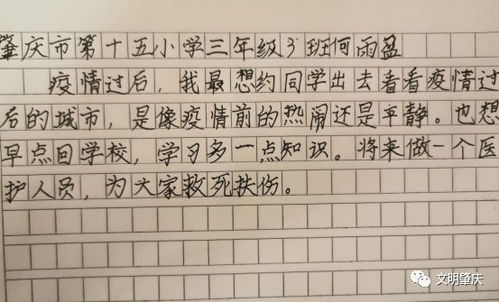 肇庆市第十五小学三年级3班何雨盈
疫情过后，我最想约同学出去看看疫情过
后的城市，是像疫情前的热闹还是平静。也想
早点回学校，学习多一点知识。将来做一个医
护人员，为大家救死扶伤。
文明肇庆